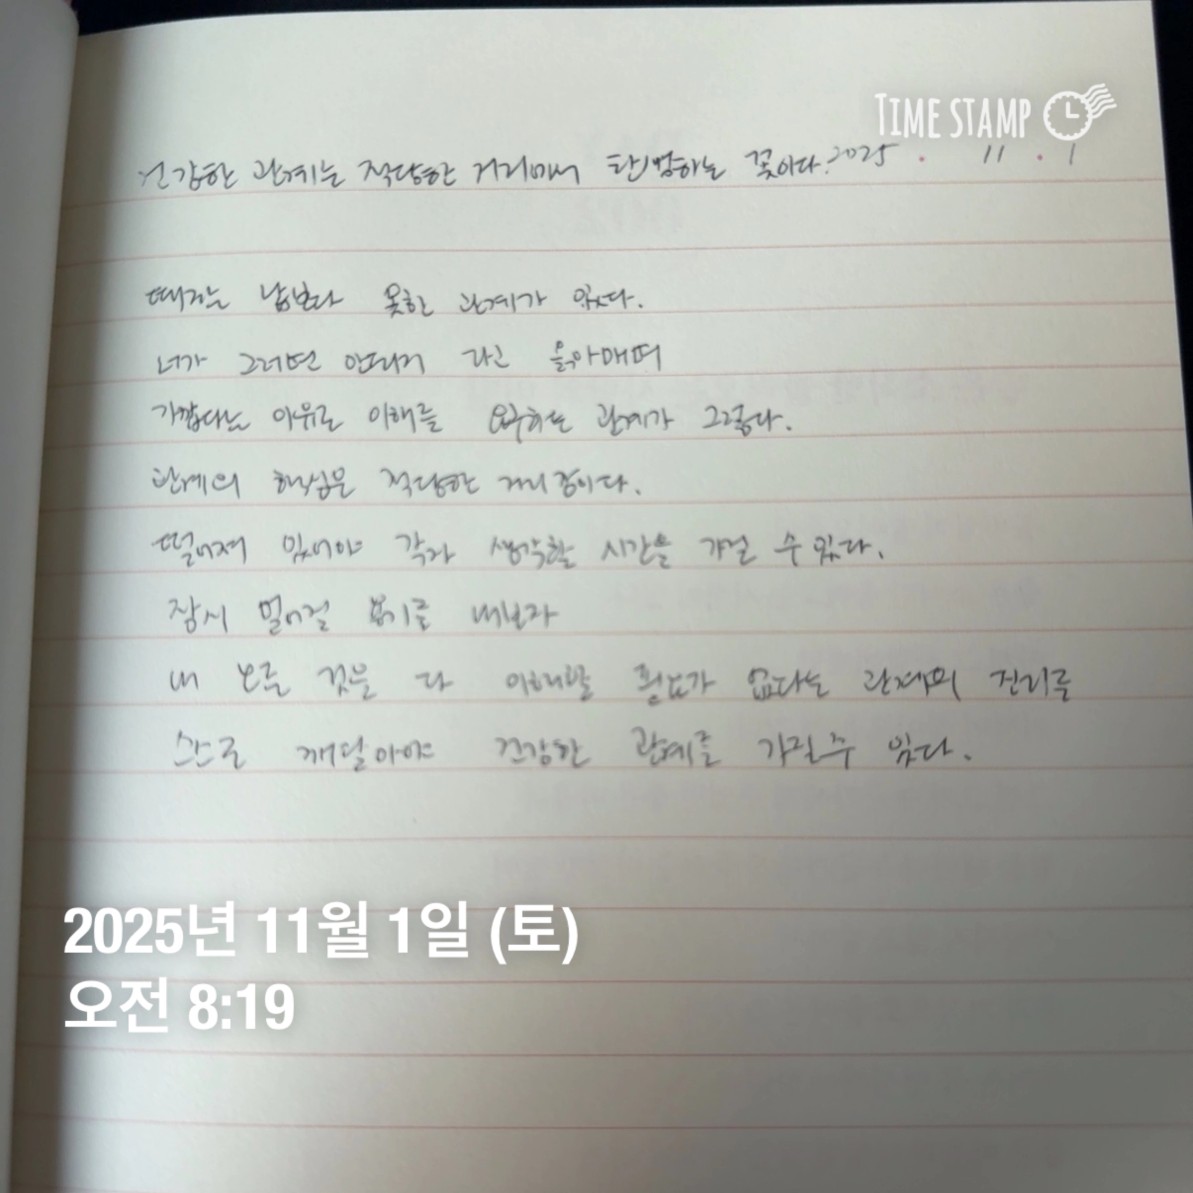 TIME STAMP
건강한 관계는 적당한 거리에서 탄생하는 꽃이다. 2025 . 11 . 1
때로는 남보다 못한 관계가 있다.
너가 그러면 안되지 라고 옭아매며
가깝다는 이유로 이해를 요구하는 관계가 그렇다.
관계의 핵심은 적당한 거리감이다.
떨어져 있어야 각자 생각할 시간을 가질 수 있다.
잠시 멀어질 용기를 내보자
내 모든 것을 다 이해할 필요가 없다는 관계의 진리를
스스로 깨달아야 건강한 관계를 가질 수 있다.
2025년 11월 1일 (토)
오전 8:19